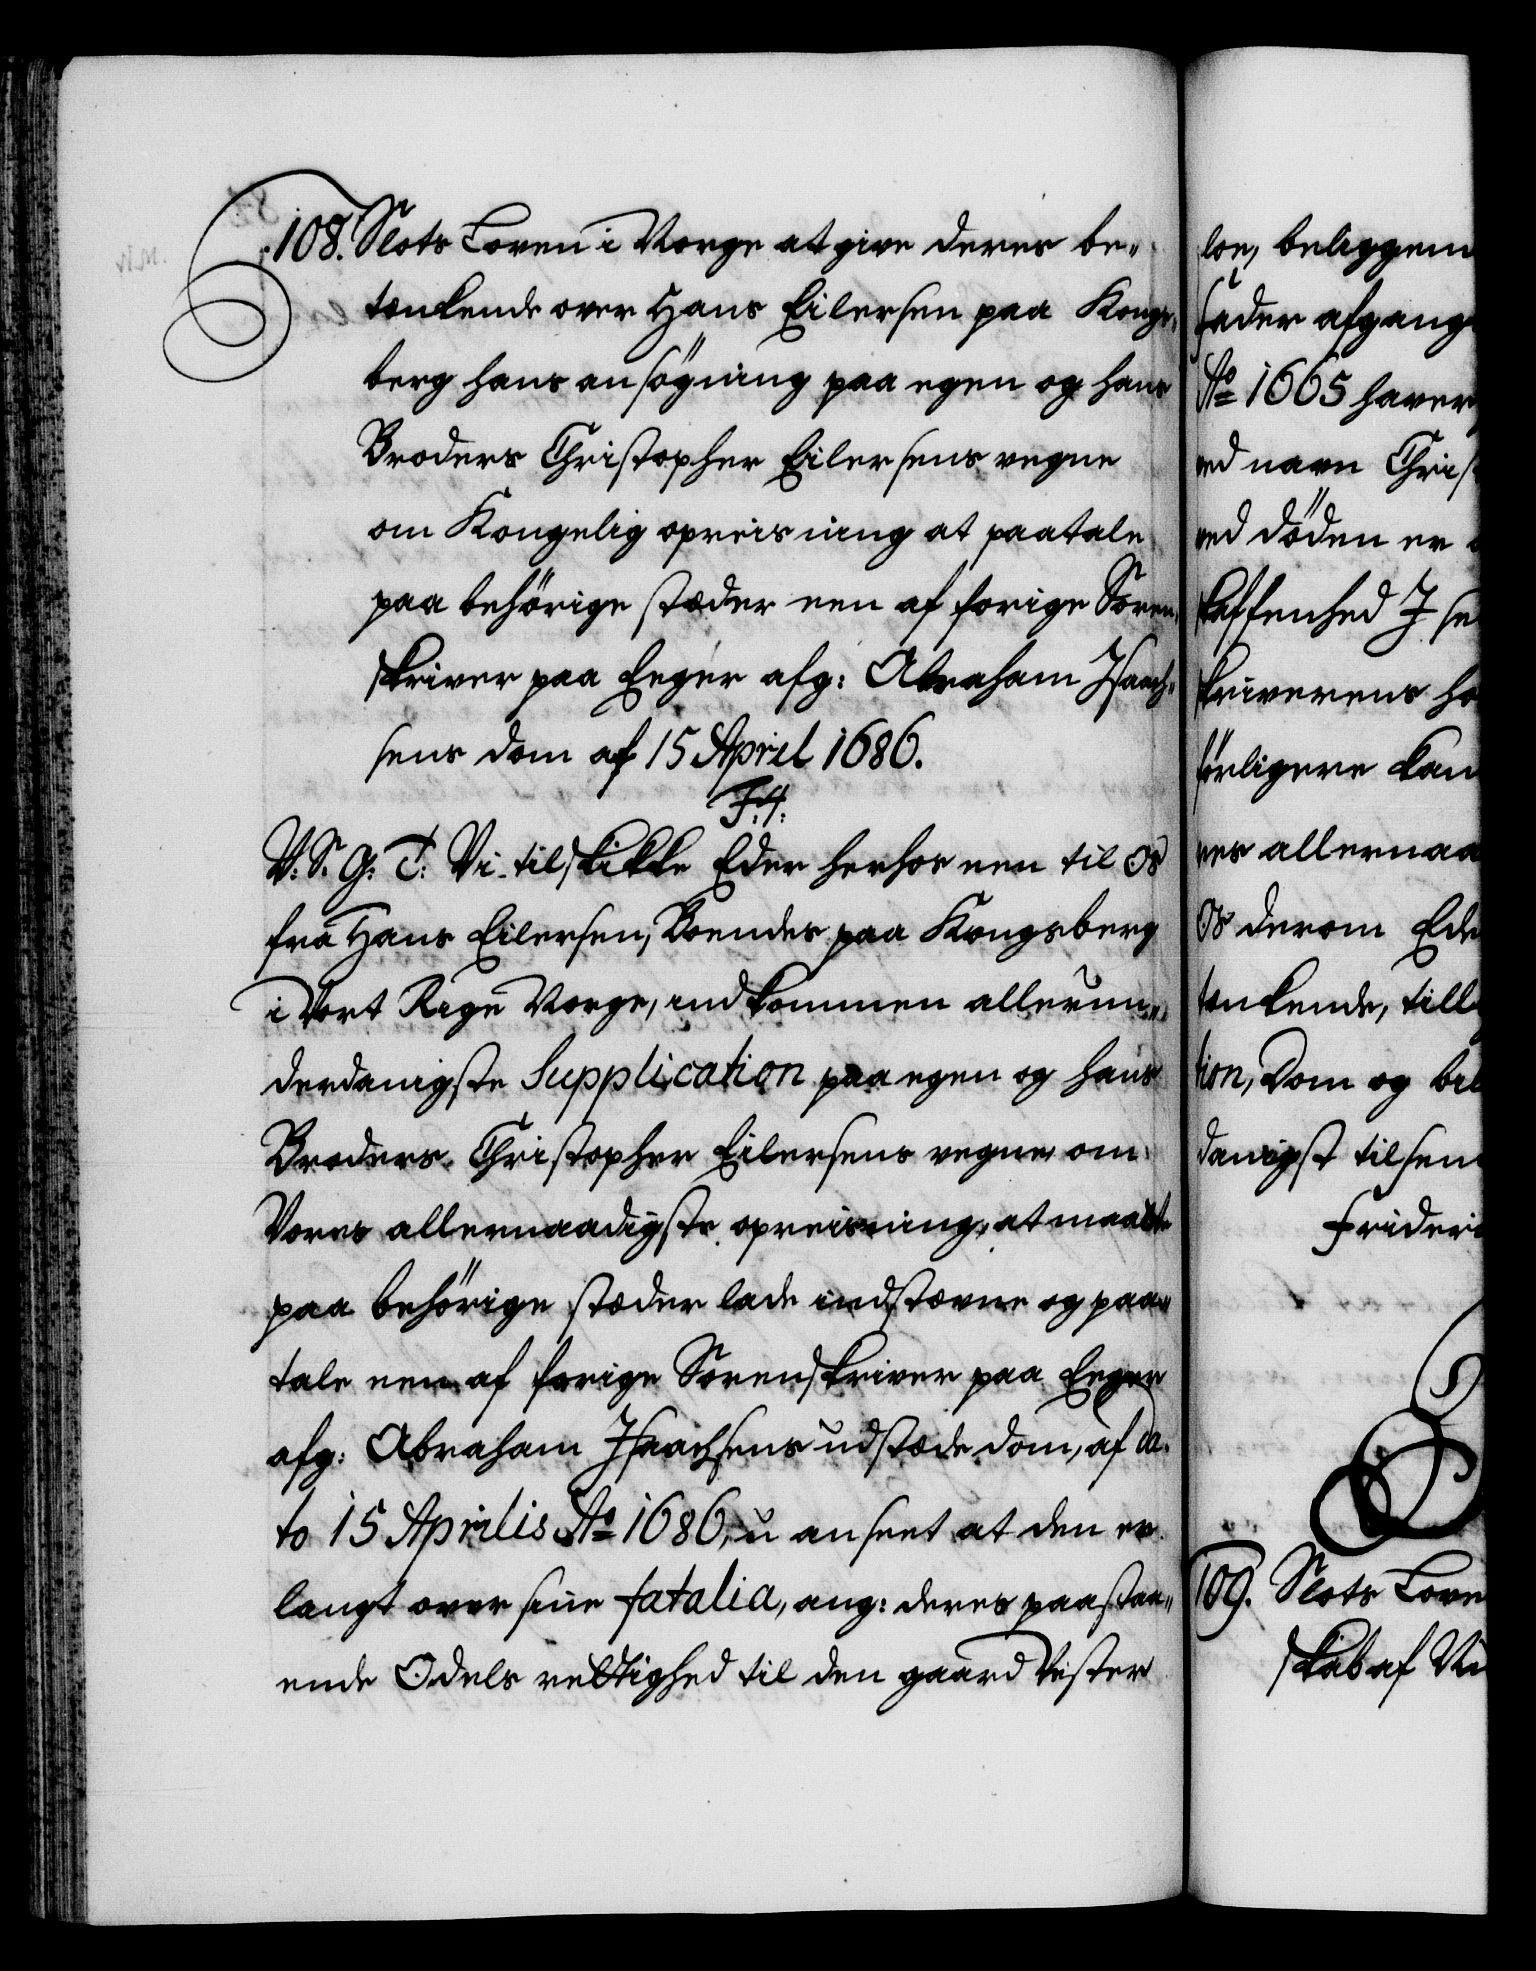 108. Slots Loven i Norge at give deres be„
tænkende over Hans Eilersen paa Kongs„
berg hans ansögning paa egen og hans
Broders Christopher Eilersens vegne
om Kongelig opreisning at paatale
paa behörige stæder een af forige Soren„
skriver paa Eeger afg: Abraham Isaach„
sens dom af 15 April 1686.
F. 4.
V. S. G. T: Vi tilskikke Eder herhos een til Os
fra Hans Eilersen, Boendes paa Kongsberg
i Vort Rige Norge, indkommen allerun„
derdanigste Supplication paa egen og hans
Broders Christopher Eilersens vegne om
Vores allernaadigste opreisning, at maatte
paa behörige stæder lade indstævne og paa„
tale een af forige Sorenskriver paa Eeger
afg: Abraham Isaachsens udstæde dom, af da„
to 15 Aprilis Ao 1686, u anseet at den er
langt over sine fatalia, ang: deres paastaa„
ende Odels rettighed til den gaard Vester
loe, beliggen
fader afgang
Ao 1665 haver
ved navn Chris
ved döden er
skaffenhed I se
skriverens ho
förligere kan
res allernaa
Os derom Ede
tænkende, till
tion, Dom og bil
danigst tilsen
Frideri
109. Slots Love
skab af Ni